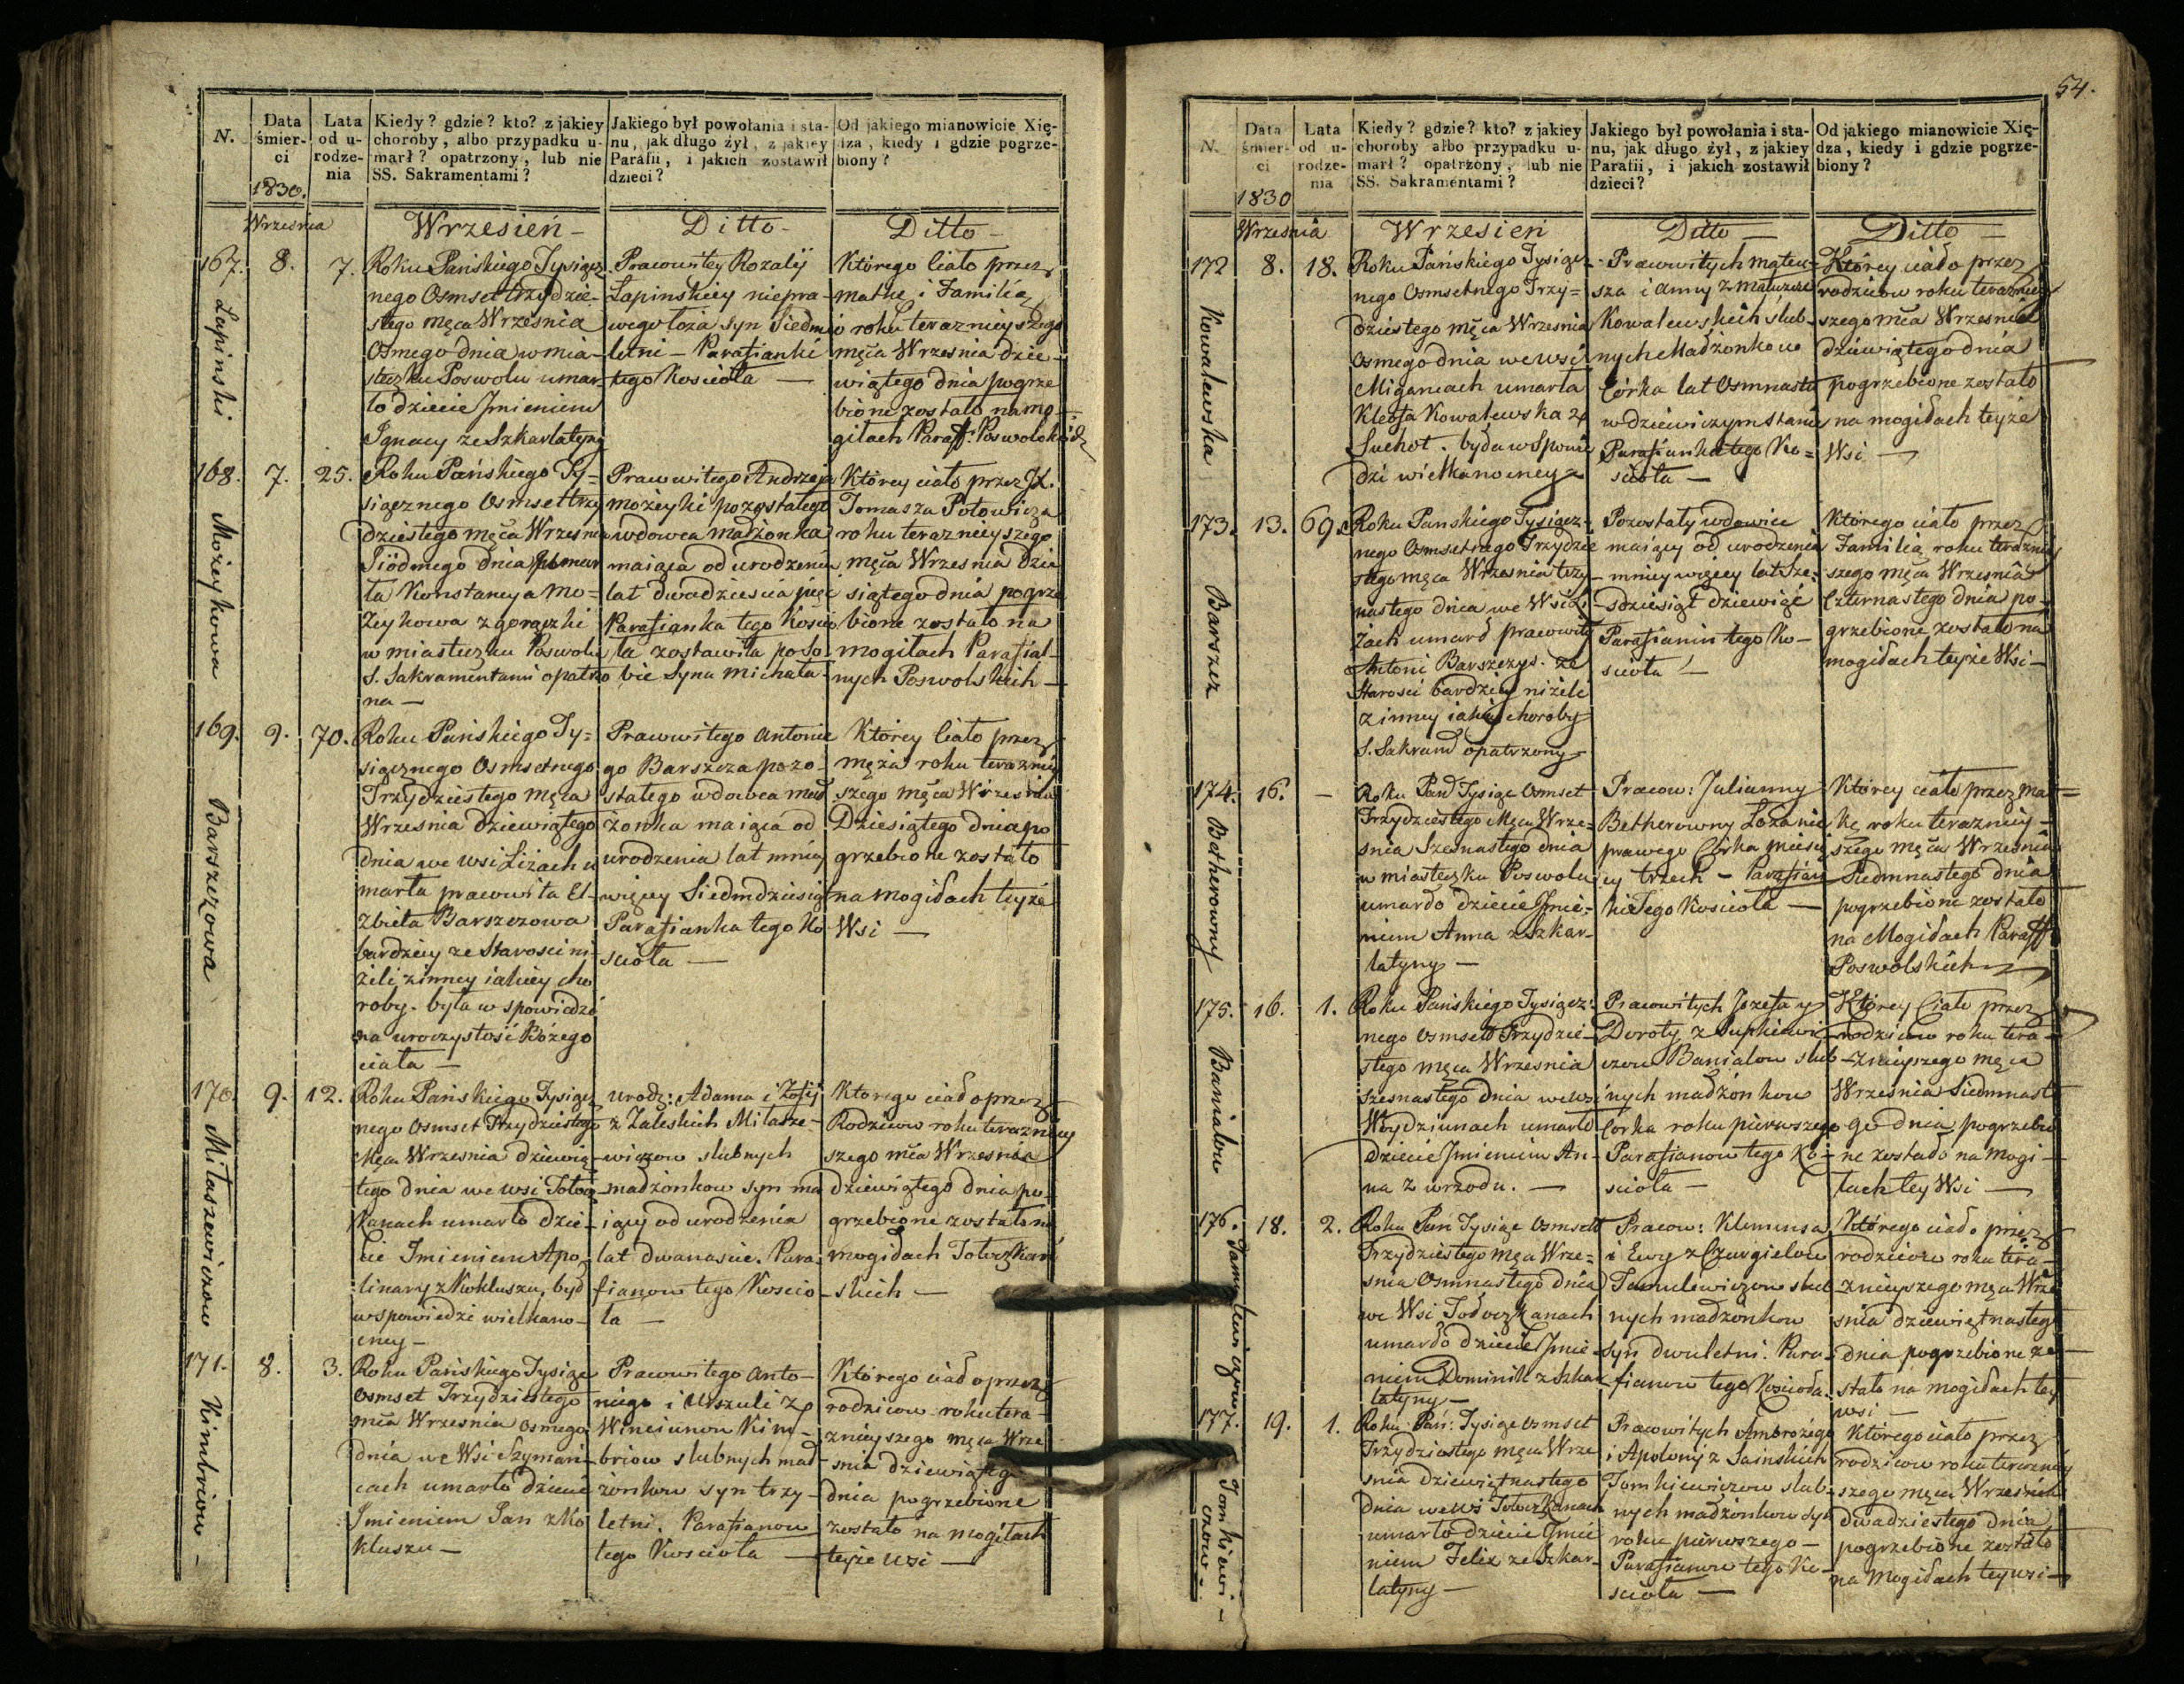 N.
Data śmierci
1830.
Lata od urodzenia
Kiedy? gdzie? kto? z jakiey
choroby, albo przypadku u-
marł? opatrzony, lub nie
SS. Sakramentami?
Jakiego był powołania i sta-
nu, jak długo żył, z jakiey
Parafii, i jakich zostawił
dzieci?
Od jakiego mianowicie Xię-
dza, kiedy i gdzie pogrze-
biony?
Września
Wrzesień -
Ditto -
Ditto -
167.
Łapinski
8.
7.
Roku Pańskiego Tysiącz
nego Osmset trzydzie-
stego męca Września
Osmego dnia w mia-
steczku Poswolu umar-
ło dziecie Jmieniem
Ignacy ze Szkarlatyny
Pracowitey Rozalij
Łapinskiey niepra-
wego łoża syn siedmio
letni - Parafianki
tego Kościoła —
Którego ciało przez
matkę i Familią
roku teraznieyszego
męca Września dzie-
wiątego dnia pogrze
bione zostało na mo-
giłach Paraff: Poswolskich
168.
Możeykowa
7.
25.
Roku Pańskiego Ty-
siącznego Osmset trzy
dziestego męca Września
Siódmego dnia umar
ła Konstancya Mo-
żeykowa z gorączki
w miasteczku Poswolu
S. Sakramentami opatrzo
na —
Pracowitego Andrzeja
możeyki pozostałego
wdowca małżonka
maiąca od urodzenia
lat dwadzieścia pięć
Parafianka tego Koscio
ła zostawiła po so-
bie Syna Michała
Którey ciało przez JX.
Tomasza Potowicza
roku teraznieyszego
męca Września dzie
siątego dnia pogrze
bione zostało na
mogiłach Parafial-
nych Poswolskich —
169.
Barszczowa
9.
70.
Roku Pańskiego Ty-
siącznego Osmsetnego
Trzydziestego męca
Września dziewiątego
dnia we wsi Liżach u
marła pracowita El-
zbieta Barszczowa
bardziey ze Starosci ni-
żeli zinney iakiey cho
roby. była w spowiedzi
na uroczystość Bożego
ciała —
Pracowitego Antonie
go Barszcza pozo-
stałego wdowca mał
żonka maiąca od
urodzenia lat mniey
więcey Siedmdziesiąt
Parafianka tego Ko
scioła —
Którey ciało przez
męża roku teraznie
szego męca Września
Dziesiątego dnia po
grzebione zostało
na mogiłach teyże
Wsi —
170.
Miłaszewiczow
9.
12.
Roku Pańskiego Tysiącz
nego Osmset Trzydziestego
Męca Września dziewią-
tego dnia we wsi Tołocz
kanach umarło dzie-
cie Imieniem Apo-
linary z Kokluszu, był
w spowiedzi wielkano-
cney —
urodz: Adama i Zofij
z Zaleskich Miłasze-
wiczow slubnych
małżonkow syn ma
iący od urodzenia
lat dwanascie. Para-
fianow tego Koscio-
ła —
Którego ciało przez
Rodzicow roku terazniey
szego mca Września
dziewiątego dnia po-
grzebione zostało na
mogiłach Tołoczkań
skich —
171.
Kimbriow -
8.
3.
Roku Pańskiego Tysiącz
Osmset Trzydziestego
mca Września osmego
dnia we Wsi Szymani-
cach umarło dziecie
Imieniem Jan z Ko
kluszu —
Pracowitego Anto-
niego i Urszuli z
Winciunow Kim-
briow slubnych mał-
żonkow syn trzy-
letni. Parafianow
tego Koscioła —
Którego ciało przez
rodzicow roku tera-
znieyszego męca Wrze
snia dziewiątego
dnia pogrzebione
zostało na mogiłach
teyże wsi —
54.
N.
Data śmierci
1830
Lata od urodzenia
Kiedy? gdzie? kto? z jakiey
choroby albo przypadku u-
marł? opatrzony, lub nie
SS. Sakramentami?
Jakiego był powołania i sta-
nu, jak długo żył, z jakiey
Parafii, i jakich zostawił
dzieci?
Od jakiego mianowicie Xię-
dza, kiedy i gdzie pogrze-
biony?
Września
Wrzesień
Ditto —
Ditto —
172
Kowalewska
8.
18.
Roku Pańskiego Tysiącz-
nego Osmsetnego Trzy-
dziestego męca Września
Osmego dnia we wsi
Migancach umarła
Kleofa Kowalewska z
Suchot. była w Spowie
dzi wielkanocney
Pracowitych Mateu-
sza i Anny z
Kowalewskich slub-
nych Małżonkow
Córka lat Osmnastu
w dziewiczym stanie
Parafianka tego Ko-
scioła —
Którey ciało przez
rodzicow roku teraznie
szego mca Września
dziewiątego dnia
pogrzebione zostało
na mogiłach teyże
Wsi —
173.
Barszcz
13.
69.
Roku Pańskiego Tysiącz-
nego Osmsetnego Trzydzie
stego męca Września trzy-
nastego dnia we Wsi Li-
żach umarł pracowity
Antoni Barszczys. ze
Starosci bardziey niżeli
z inney iakiey choroby
S. Sakram opatrzony —
Pozostały wdowiec
maiący od urodzenia
mniey więcey lat sze-
sdziesiąt dziewięć
Parafianin tego Ko-
scioła —
Którego ciało przez
Familią roku teraznie
szego męca Września
Czternastego dnia po-
grzebione zostało na
mogiłach teyże Wsi —
174.
Betherowny
16.
-
Roku Pań Tysiąc Osmset
Trzydziestego Męca Wrze-
snia Szesnastego dnia
w miasteczku Poswolu
umarło dziecie Jmie-
niem Anna z Szkar-
latyny —
Pracow: Julianny
Betherowny Łoża nie
prawego Córka miesię
cy trzech - Parafian
ki tego Koscioła —
Którey ciało przez mat-
kę roku terazniey-
szego męca Września
Siedmnastego dnia
pogrzebione zostało
na Mogiłach Paraff
Poswolskich
175.
Banialow
16.
1.
Roku Pańskiego Tysiącz-
nego Osmset Trzydzie-
stego męca Września
szesnastego dnia we wsi
Woydziunach umarło
Dziecie Jmieniem An-
na z wrzodu. —
Pracowitych Jozefa y
Doroty z Supkiewi-
czow Banialow slub-
nych małżonkow
Corka roku pierwszego
Parafianow tego Ko-
scioła —
Którey Ciało przez
rodzicow roku tera-
znieyszego męca
Września Siedmnast
go dnia pogrzebio
ne zostało na mogi-
łach tey Wsi —
176.
Tamulewiczow
18.
2.
Roku Pań Tysiąc Osmset
Trzydziestego męca Wrze-
snia Osmnastego dnia
we Wsi Tołoczkanach
umarło dziecie Jmie-
niem Dominik z Szkar
latyny —
Pracow: Klemensa
i Ewy z Czurgielow
Tamulewiczow slub
nych małżonkow
syn dwuletni. Para-
fianow tego Koscioła.
Którego ciało przez
rodzicow roku tera-
znieyszego męca Wrze
snia dziewiętnastego
dnia pogrzebione zo-
stało na mogiłach tey
wsi —
177.
Tomkiewi-
czow -
19.
1.
Roku Pań: Tysiąc Osmset
Trzydziestego męca Wrze
snia dziewiętnastego
Dnia we wsi Tołoczkanach
umarło dziecie Jmie
niem Felix ze Szkar-
latyny —
Pracowitych Ambrożego
i Apolonij z Sainskich
Tomkiewiczow slub-
nych małżonkow syn
roku pierwszego —
Parafianow tego Ko-
scioła —
Którego ciało przez
rodzicow roku teraznie
szego męca Września
dwadziestego dnia
pogrzebione zostało
na Mogiłach tey wsi —